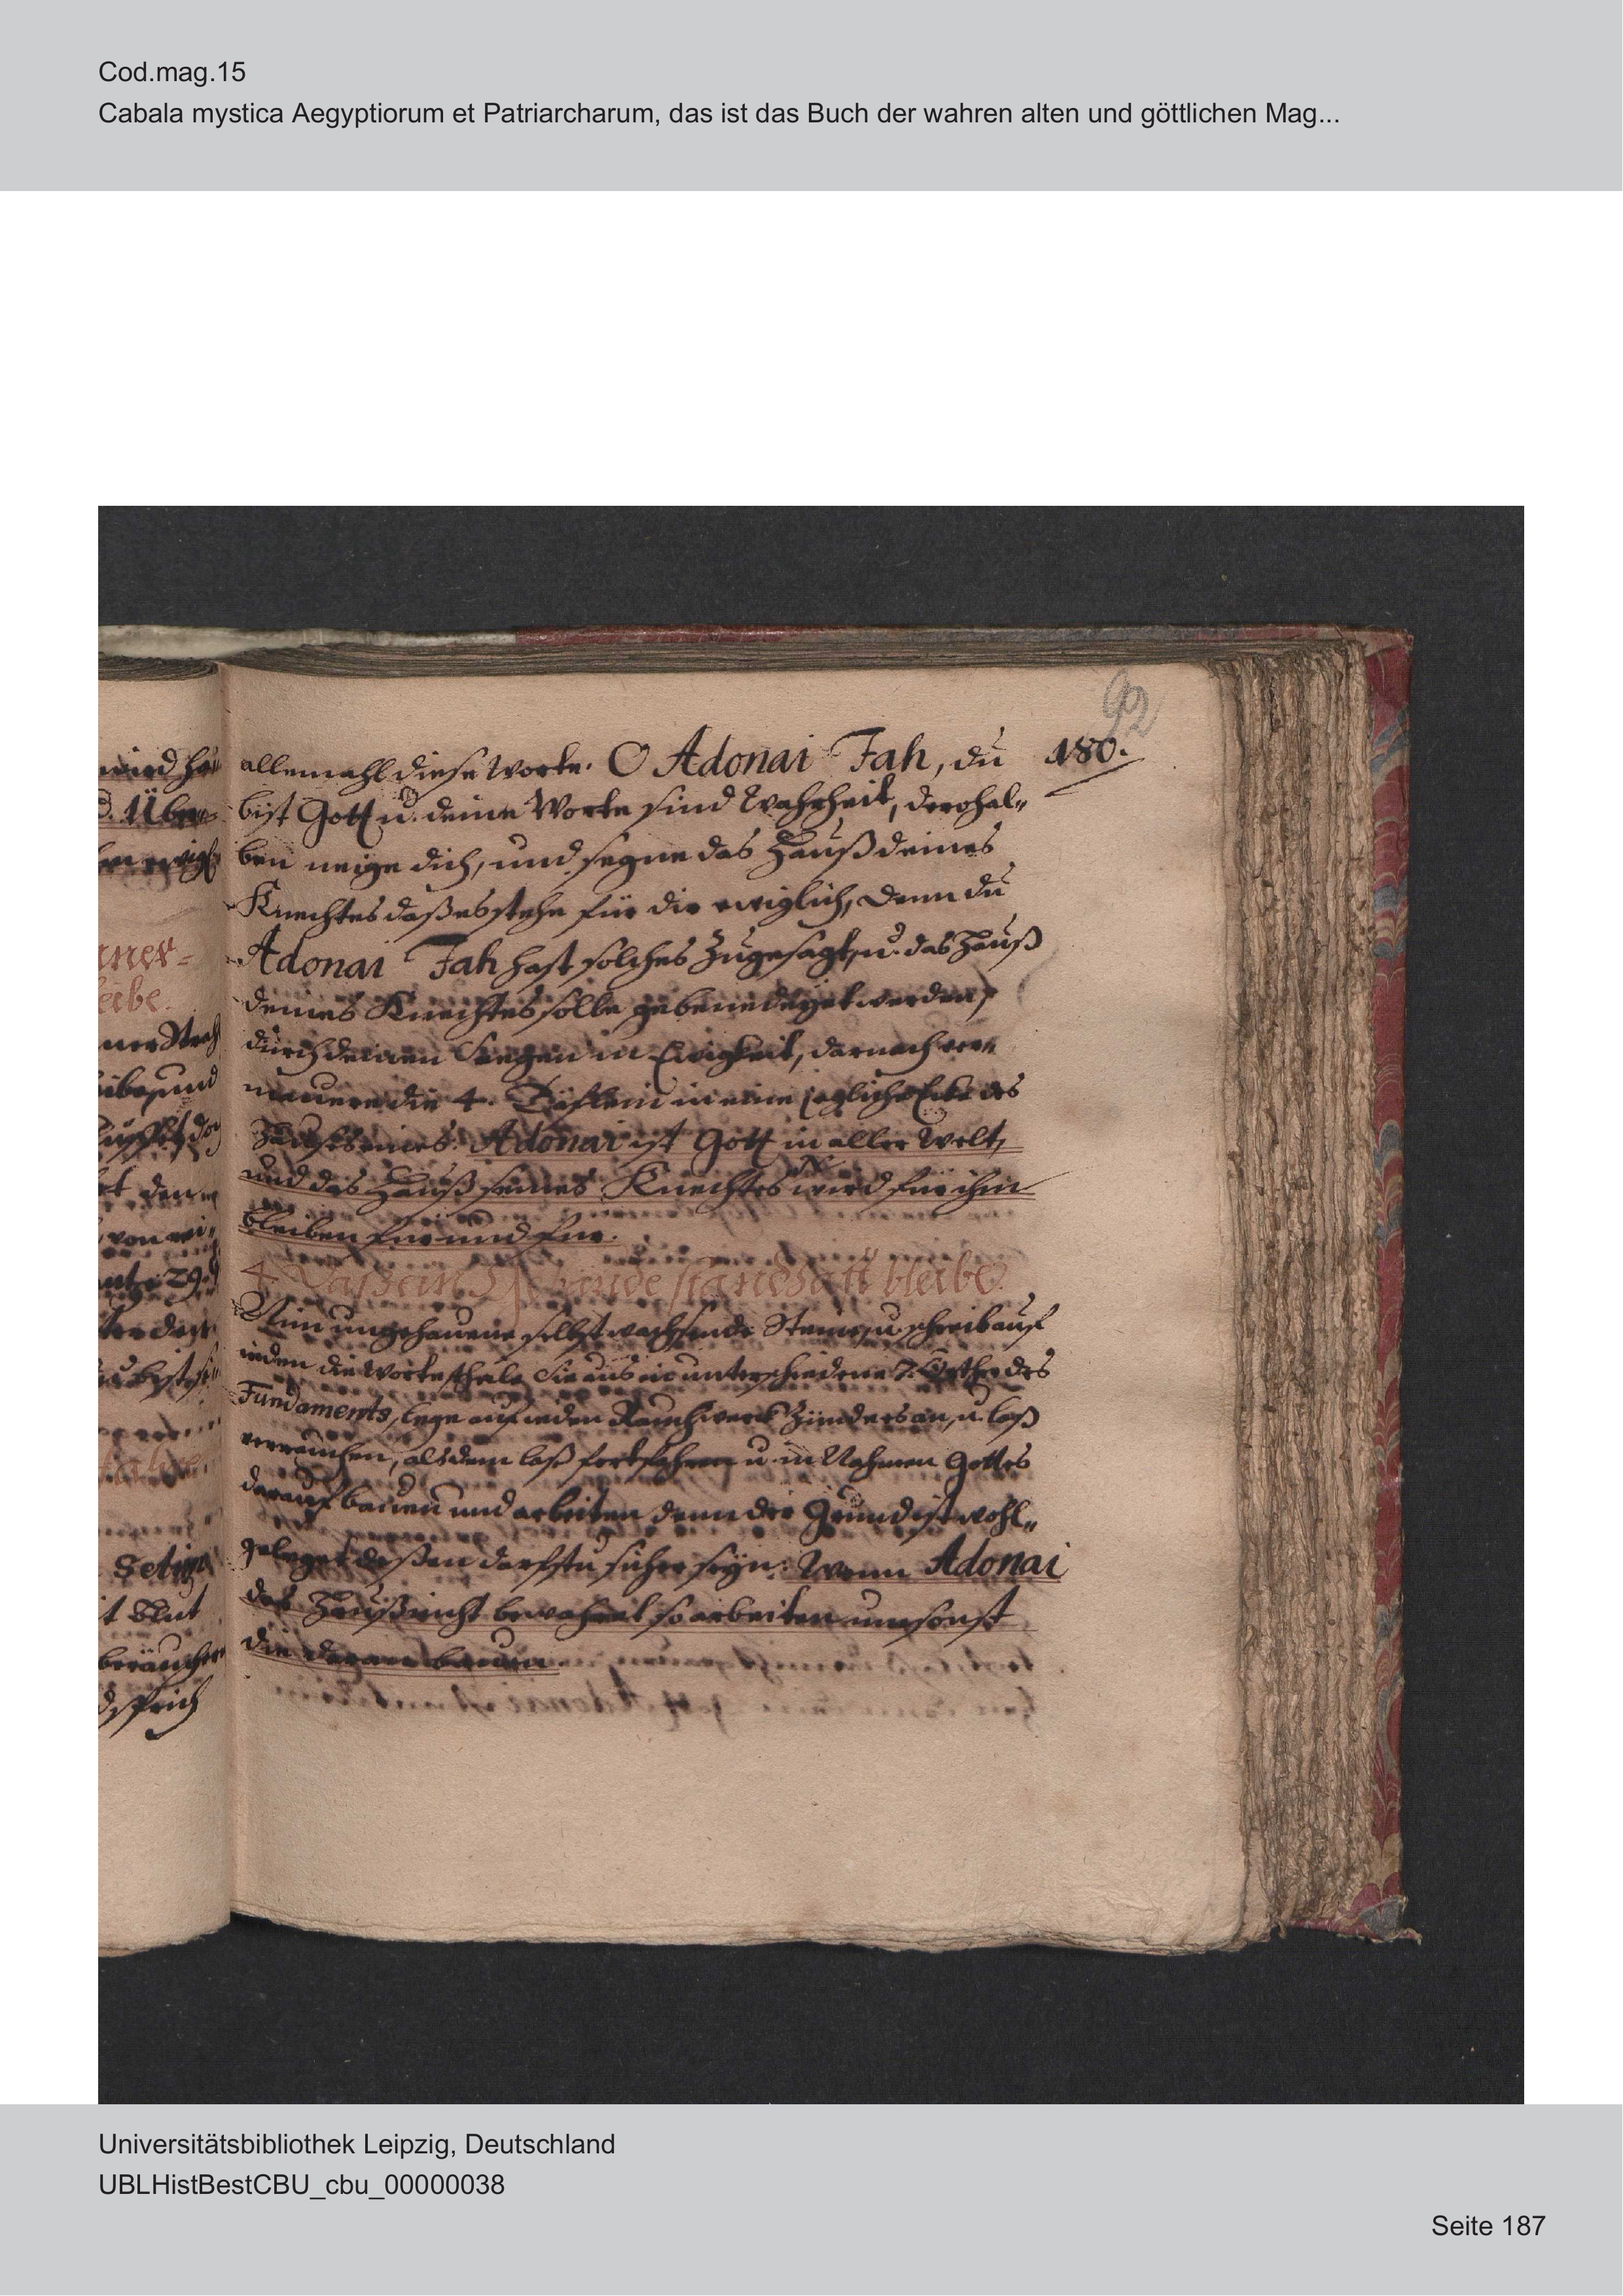 Cod.mag.15
Cabala mystica Aegyptiorum et Patriarcharum, das ist das Buch der wahren alten und göttlichen Mag...
92
180.
allemahl diese Worte. O Adonai Jah, du
bist Gott u. deine Worte sind Wahrheit, derohal„
ben neige dich, und segne das Hauß deines
Knechtes daß es stehe für dir ewiglich, denn du
Adonai Jah hast solches zugesagt, u. das Hauß
deines Knechtes solle gebenedeyet werden,
durch deinen Seegen in Ewigkeit, darnach ver„
mauere die 4. Däflein in eine jegliche Ecke des
Haußes eines. Adonai ist Gott in aller Welt,
und das Hauß seines Knechtes wird für ihm
bleiben für und für.
4. Das ein Gebäude standhatt bleibe.
Nim ungehauene selbst wachsende Steine, u. schreib auf
ieden die Worte, theile Sie aus in unterschiedene Orthe des
Fundaments, lege auf ieden Rauchwerck zünders an, u. laß
verrauchen, alsdem laß fortfahren u. in Nahmen Gottes
darauf bauen und arbeiten denn der Grund ist wohl„
geleget deßen darfstu sicher seyn. Wenn Adonai
das Hauß nicht bewahret so arbeiten umsonst
die daran bauen.
wird
Über=
ewig
ner=
leibe.
ner
und
den
von
29.
bist
Setim
it Blut
beräuchere
sprich
Universitätsbibliothek Leipzig, Deutschland
UBLHistBestCBU_cbu_00000038
Seite 187